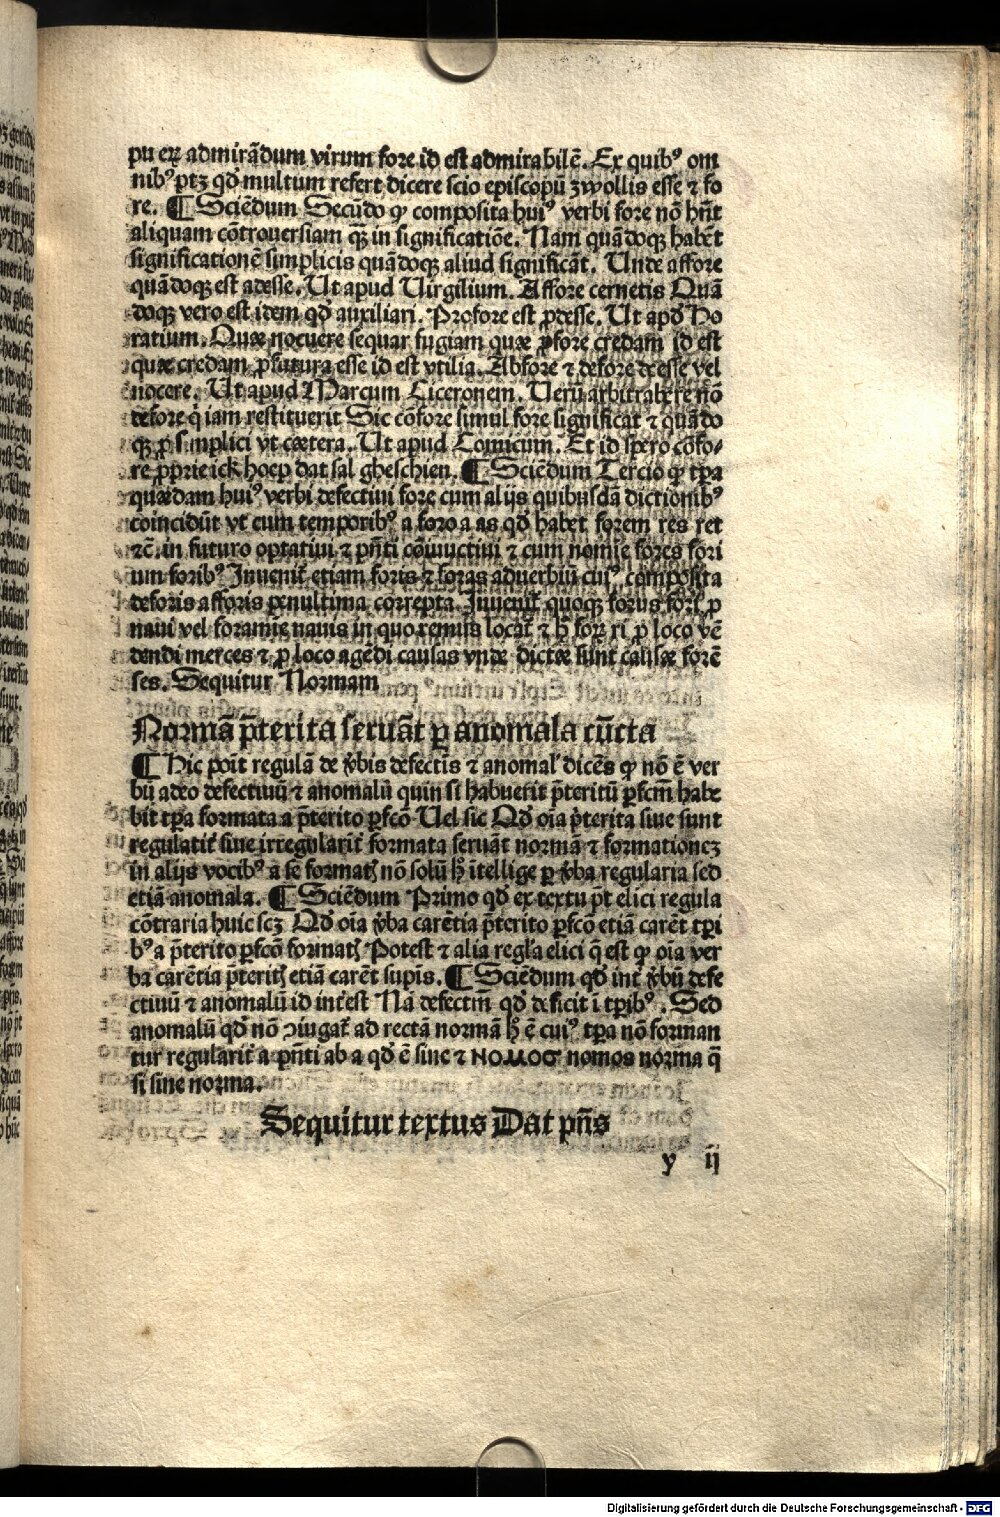 pu eꝝ admirādum virum fore id est admirabilē. Ex quibꝰ om
nibꝰ ptꝫ qđ multum refert dicere scio episcopū zwollis esse ⁊ fo
re. ¶ Sciēdum Secūdo ꝙ composita huiꝰ verbi fore nō hn̄t
aliquam cōtrouersiam qꝫ in significatiōe. Nam quādoqꝫ habēt
significationē simplicis quādoqꝫ aliud significāt. Unde affore
quādoqꝫ est adesse. Ut apud Uirgilium. Affore cernetis Quā
doqꝫ vero est idem qđ auxiliari. Profore est ꝓdesse. Ut apđ Ho
ratium. Quæ nocuere sequar fugiam quæ ꝓfore credam id est
quæ credam ꝓfutura esse id est vtilia. Abfore ⁊ defore deesse vel
nocere. Ut apud Marcum Ciceronem. Uerū arbitrabere nō
defore q̇ iam restituerit Sic cōfore simul fore significat ⁊ quādo
qꝫ ꝓ simplici vt cætera. Ut apud Comicum. Et id spero cōfo-
re ꝓprie ick hoep dat sal gheschien. ¶ Sciēdum Tercio ꝙ tꝑa
quædam huiꝰ verbi defectiui fore cum alijs quibusdā dictionibꝰ
coincidūt vt cum temporibꝰ a foro a as qđ habet forem res ret
⁊c̄. in futuro optatiui ⁊ pn̄ti cōiunctiui ⁊ cum nomīe fores fori
um foribꝰ Inuenit̄ etiam foris ⁊ foras aduerbiū cuiꝰ composita
deforis afforis penultima correpta. Inuenit̄ quoqꝫ forus fori ꝓ
naui vel foramīe nauis in quo remus locat̄ ⁊ h̄ foꝝ ri ꝓ loco vē
dendi merces ⁊ ꝓ loco agēdi causas vnde dictæ sunt causæ forē
ses. Sequitur Normam
Normā p̄terita seruāt ꝑ anomala cūcta
¶ Hic poīt regulā de v̄bis defectis ⁊ anomal̕ dicēs ꝙ nō ē ver
bū adeo defectiuū ⁊ anomalū quin si habuerit p̄teritū ꝑfcm̄ habe
bit tꝑa formata a p̄terito ꝑfcō Uel sic Qđ oīa p̄terita siue sunt
regularit̄ siue irregularit̄ formata seruāt normā ⁊ formationeꝫ
in alijs vocibꝰ a se formatꝭ nō solū h̄ ītellige ꝑ v̄ba regularia sed
etiā anomala. ¶ Sciēdum Primo qđ ex textu pt̄ elici regula
cōtraria huic scꝫ Qđ oīa v̄ba carētia p̄terito ꝑfcō etiā carēt tꝑi
bꝰ a p̄terito ꝑfcō formatꝭ Potest ⁊ alia regl̕a elici q̄ est ꝙ oīa ver
ba carētia p̄teritꝭ etiā carēt supīs. ¶ Sciēdum qđ int̄ v̄bū defe
ctiuū ⁊ anomalū id int̄est Nā defectiū qđ deficit ī tꝑibꝰ. Sed
anomalū qđ nō ꝯiugat̄ ad rectā normā h̄ ē cuiꝰ tꝑa nō forman
tur regularit̄ a pn̄ti ab a qđ ē sine ⁊ ΝΟΜΟϹ nomos norma q̄
si sine norma.
Sequitur textus Dat pn̄s
y ij
Digitalisierung gefördert durch die Deutsche Forschungsgemeinschaft - DFG